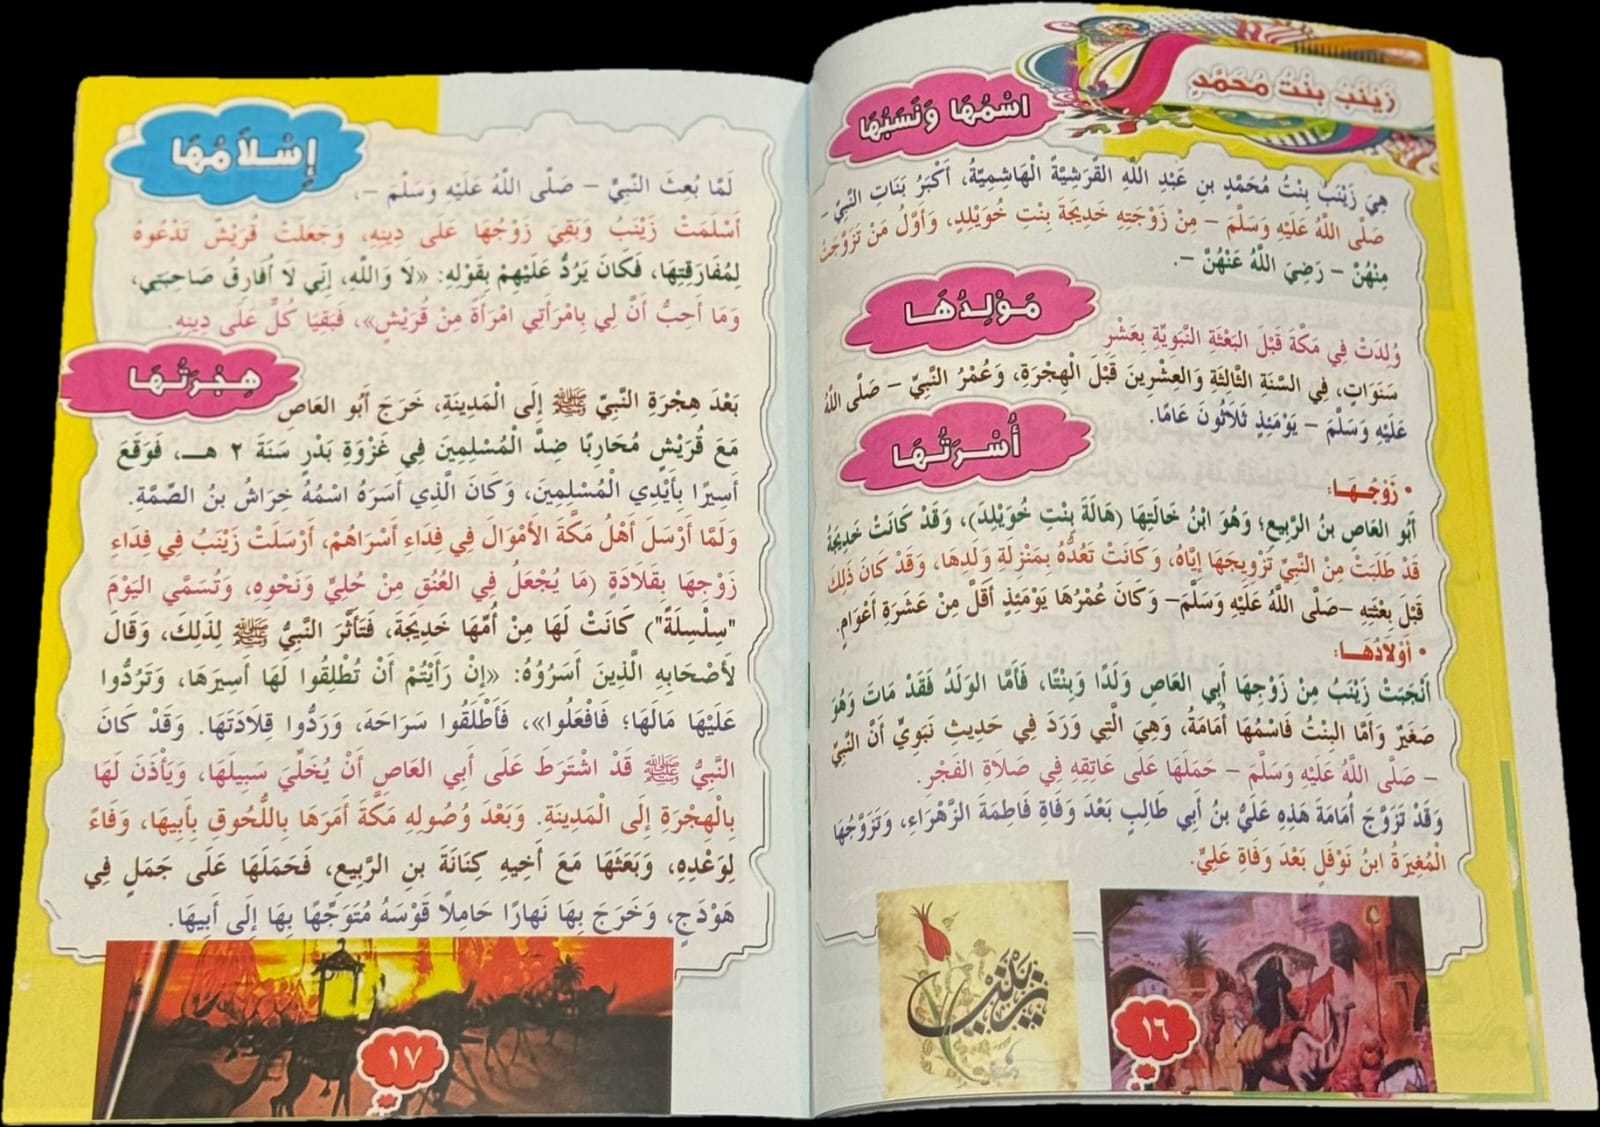 زَيْنَبُ بِنْتُ مُحَمَّدٍ
اسْمُهَا وَنَسَبُهَا
هِيَ زَيْنَبُ بِنْتُ مُحَمَّدٍ بنِ عَبْدِ اللَّهِ القُرَشِيَّةُ الْهَاشِمِيَّةُ، أَكْبَرُ بَنَاتِ النَّبِيِّ –
صَلَّى اللَّهُ عَلَيْهِ وَسَلَّمَ – مِنْ زَوْجَتِهِ خَدِيجَةَ بِنْتِ خُوَيْلِدٍ، وَأَوَّلُ مَنْ تَزَوَّجَتْ
مِنْهُنْ – رَضِيَ اللَّهُ عَنْهُنْ –.
مَوْلِدُهَا
وُلِدَتْ فِي مَكَّةَ قَبْلَ البَعْثَةِ النَّبَوِيَّةِ بِعَشْرِ
سَنَوَاتٍ، فِي السَّنَةِ الثَّالِثَةِ وَالعِشْرِينَ قَبْلَ الْهِجْرَةِ، وَعُمْرُ النَّبِيِّ – صَلَّى اللهُ
عَلَيْهِ وَسَلَّمَ – يَوْمَئِذٍ ثَلَاثُونَ عَامًا.
أُسْرَتُهَا
• زَوْجُـهَـا:
أَبُو العَاصِ بنُ الرَّبِيعِ؛ وَهُوَ ابْنُ خَالَتِهَا (هَالَةَ بِنْتِ خُوَيْلِدَ)، وَقَدْ كَانَتْ خَدِيجَةُ
قَدْ طَلَبَتْ مِنَ النَّبِيِّ تَزْوِيجَهَا إِيَّاهُ، وَكَانَتْ تَعُدُّهُ بِمَنْزِلَةِ وَلَدِهَا، وَقَدْ كَانَ ذَلِكَ
قَبْلَ بِعْثَتِهِ –صَلَّى اللَّهُ عَلَيْهِ وَسَلَّمَ– وَكَانَ عُمْرُهَا يَوْمَئِذٍ أَقَلَّ مِنْ عَشَرَةِ أَعْوَامٍ.
• أَوْلَادُهَـا:
أَنْجَبَتْ زَيْنَبُ مِنْ زَوْجِهَا أَبِي العَاصِ وَلَدًا وَبِنْتًا، فَأَمَّا الوَلَدُ فَقَدْ مَاتَ وَهُوَ
صَغِيرٌ وَأَمَّا البِنْتُ فَاسْمُهَا أُمَامَةُ، وَهِيَ الَّتِي وَرَدَ فِي حَدِيثٍ نَبَوِيٍّ أَنَّ النَّبِيَّ
– صَلَّى اللَّهُ عَلَيْهِ وَسَلَّمَ – حَمَلَهَا عَلَى عَاتِقِهِ فِي صَلَاةِ الفَجْرِ.
وَقَدْ تَزَوَّجَ أُمَامَةَ هَذِهِ عَلَيُّ بنُ أَبِي طَالِبٍ بَعْدَ وَفَاةِ فَاطِمَةَ الزَّهْرَاءِ، وَتَزَوَّجُهَا
الْمُغِيرَةُ ابنُ نَوْفَلٍ بَعْدَ وَفَاةِ عَلِيٍّ.
زينب
١٦
إِسْلَامُهَا
لَمَّا بُعِثَ النَّبِيُّ – صَلَّى اللَّهُ عَلَيْهِ وَسَلَّمَ –،
أَسْلَمَتْ زَيْنَبُ وَبَقِيَ زَوْجُهَا عَلَى دِينِهِ، وَجَعَلَتْ قُرَيْشٌ تَدْعُوهُ
لِمُفَارَقَتِهَا، فَكَانَ يَرُدُّ عَلَيْهِمْ بِقَوْلِهِ: «لَا وَاللَّهِ، إِنِّي لَا أُفَارِقُ صَاحِبَتِي،
وَمَا أُحِبُّ أَنَّ لِي بِامْرَأَتِي امْرَأَةً مِنْ قُرَيْشٍ»، فَبَقِيَا كُلٌّ عَلَى دِينِهِ.
هِجْرَتُهَا
بَعْدَ هِجْرَةِ النَّبِيِّ ﷺ إِلَى الْمَدِينَةِ، خَرَجَ أَبُو العَاصِ
مَعَ قُرَيْشٍ مُحَارِبًا ضِدَّ الْمُسْلِمِينَ فِي غَزْوَةِ بَدْرٍ سَنَةَ ٢ هــ، فَوَقَعَ
أَسِيرًا بِأَيْدِي الْمُسْلِمِينَ، وَكَانَ الَّذِي أَسَرَهُ اسْمُهُ خِرَاشُ بنُ الصِّمَّةِ.
وَلَمَّا أَرْسَلَ أَهْلُ مَكَّةَ الأَمْوَالَ فِي فِدَاءِ أَسْرَاهُمْ، أَرْسَلَتْ زَيْنَبُ فِي فِدَاءِ
زَوْجِهَا بِقَلَادَةٍ (مَا يُجْعَلُ فِي العُنُقِ مِنْ حُلِيٍّ وَنَحْوِهِ، وَتُسَمَّي اليَوْمَ
"سِلْسِلَةً") كَانَتْ لَهَا مِنْ أُمِّهَا خَدِيجَةَ، فَتَأَثَّرَ النَّبِيُّ ﷺ لِذَلِكَ، وَقَالَ
لأَصْحَابِهِ الَّذِينَ أَسَرُوُهُ: «إِنْ رَأَيْتُمْ أَنْ تُطْلِقُوا لَهَا أَسِيرَهَا، وَتَرُدُّوا
عَلَيْهَا مَالَهَا؛ فَافْعَلُوا»، فَأَطْلَقُوا سَرَاحَهُ، وَرَدُّوا قِلَادَتَهَا. وَقَدْ كَانَ
النَّبِيُّ ﷺ قَدْ اشْتَرَطَ عَلَى أَبِي العَاصِ أَنْ يُخَلِّيَ سَبِيلَهَا، وَيَأْذَنَ لَهَا
بِالْهِجْرَةِ إِلَى الْمَدِينَةِ. وَبَعْدَ وُصُولِهِ مَكَّةَ أَمَرَهَا بِاللُّحُوقِ بِأَبِيهَا، وَفَاءً
لِوَعْدِهِ، وَبَعَثَهَا مَعَ أَخِيهِ كِنَانَةَ بنِ الرَّبِيعِ، فَحَمَلَهَا عَلَى جَمَلٍ فِي
هَوْدَجٍ، وَخَرَجَ بِهَا نَهارًا حَامِلًا قَوْسَهُ مُتَوَجِّهًا بِهَا إِلَى أَبِيهَا.
١٧